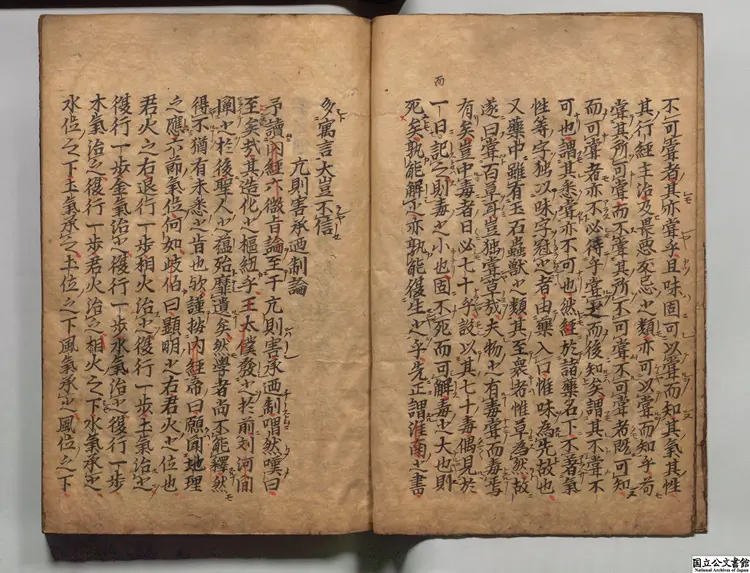 不可嘗者其亦嘗乎且味固可以嘗而知其氣其性
其行經主治及畏惡反忌之類亦可以嘗而知乎苟
嘗其所可嘗而不嘗其所不可嘗不可嘗者既可知
而可嘗者亦不必待乎嘗之而後知矣謂其不嘗不
可也謂其悉嘗亦不可也然經於諸藥名下不著氣
性等字獨以味字冠之者由藥入口惟味為先故也
又藥中雖有玉石蟲獸之類其至衆者惟草為然故
遂曰嘗百草耳豈獨嘗草哉夫物之有毒嘗而毒焉
有矣豈中毒者日以七十乎設以其七十毒偶見於
而
一日記之則毒之小也固不死而可解毒之大也則
死矣孰能解之亦孰能復生之乎先正謂淮南之書
多寓言夫豈不信
亢則害承廼制論
予讀內經六微旨論至于亢則害承廼制喟然嘆曰
至矣哉其造化之樞紐乎王太僕發之於前劉河間
闡之於後聖人之蘊殆靡遺矣然學者尚不能釋然
得不猶有未悉之旨也歟謹按內經帝曰願聞地理
之應六節氣位何如岐伯曰顯明之右君火之位也
君火之右退行一步相火治之復行一步土氣治之
復行一步金氣治之復行一步水氣治之復行一步
木氣治之復行一步君火治之相火之下水氣承之
水位之下土氣承之土位之下風氣承之風位之下
国立公文書館
National Archives of Japan